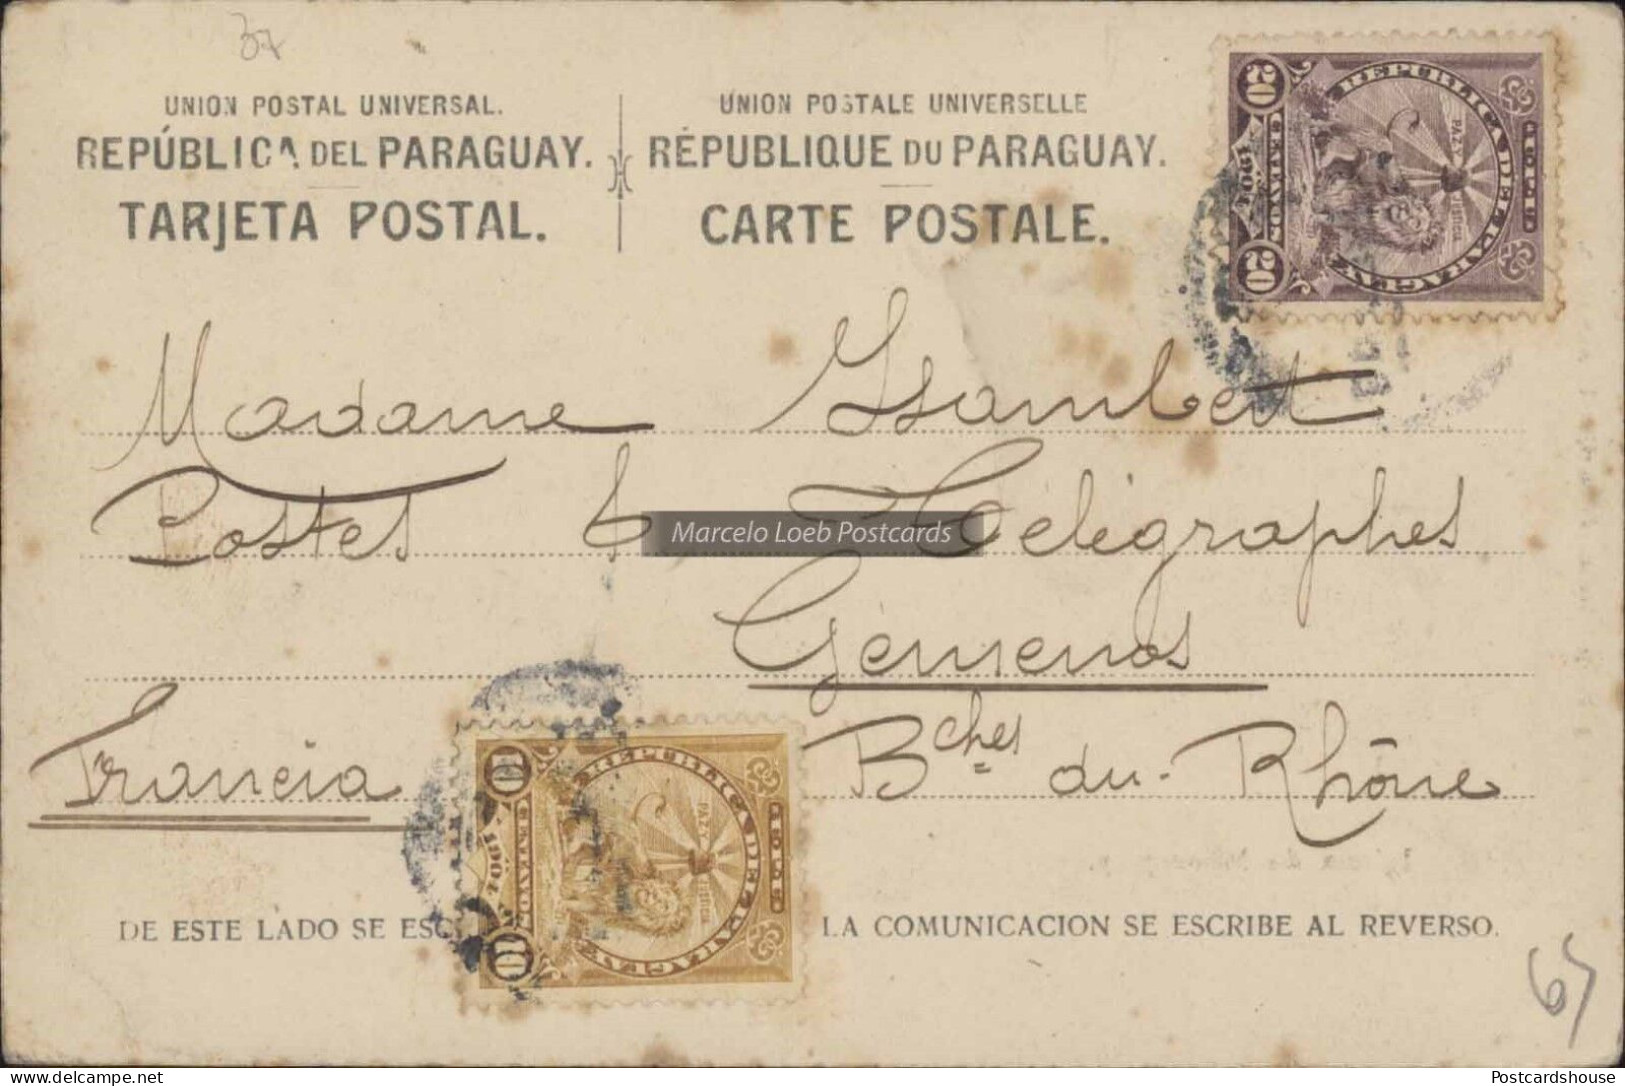 37
UNION POSTAL UNIVERSAL.
REPÚBLICA DEL PARAGUAY.
TARJETA POSTAL.
UNION POSTALE UNIVERSELLE
RÉPUBLIQUE DU PARAGUAY.
CARTE POSTALE.
REPUBLICA DEL PARAGUAY
PAZ Y JUSTICIA
20 CENTAVOS 20
1904
Madame Isambert
Postes & Télégraphes
Marcelo Loeb Postcards
Gémenos
Francia
Bches du-Rhône
REPUBLICA DEL PARAGUAY
PAZ Y JUSTICIA
10 CENTAVOS 10
1904
DE ESTE LADO SE ESC
LA COMUNICACION SE ESCRIBE AL REVERSO.
65
www.delcampe.net
Postcardshouse